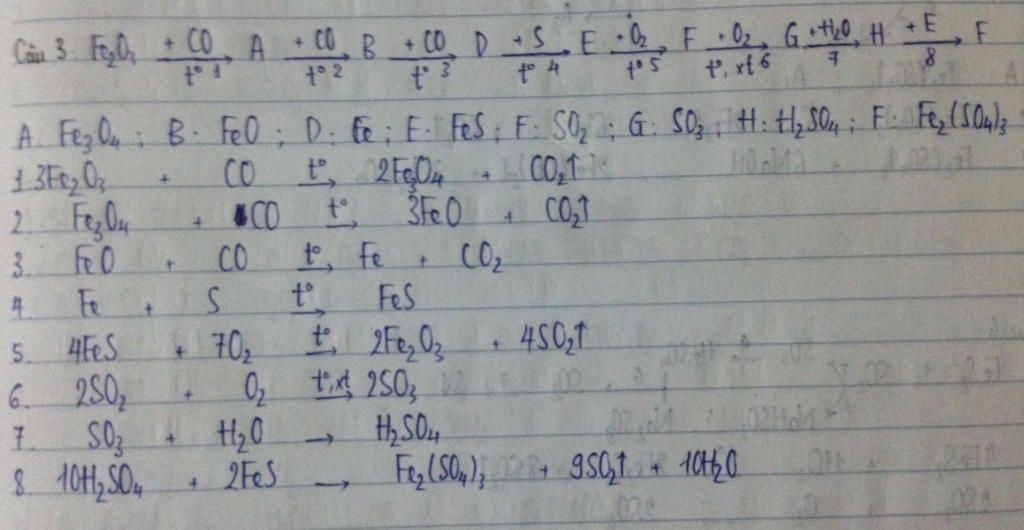 Câu 3: Fe₂O₃ + CO →(t° 1) A + CO →(t° 2) B + CO →(t° 3) D + S →(t° 4) E + O₂ →(t° 5) F + O₂ →(t°, xt 6) G + H₂O →(7) H + E →(8) F
A: Fe₃O₄ ; B: FeO ; D: Fe ; E: FeS ; F: SO₂ ; G: SO₃ ; H: H₂SO₄ ; F: Fe₂(SO₄)₃
1. 3Fe₂O₃ + CO →(t°) 2Fe₃O₄ + CO₂↑
2. Fe₃O₄ + CO →(t°) 3FeO + CO₂↑
3. FeO + CO →(t°) Fe + CO₂
4. Fe + S →(t°) FeS
5. 4FeS + 7O₂ →(t°) 2Fe₂O₃ + 4SO₂↑
6. 2SO₂ + O₂ →(t°, xt) 2SO₃
7. SO₃ + H₂O → H₂SO₄
8. 10H₂SO₄ + 2FeS → Fe₂(SO₄)₃ + 9SO₂↑ + 10H₂O